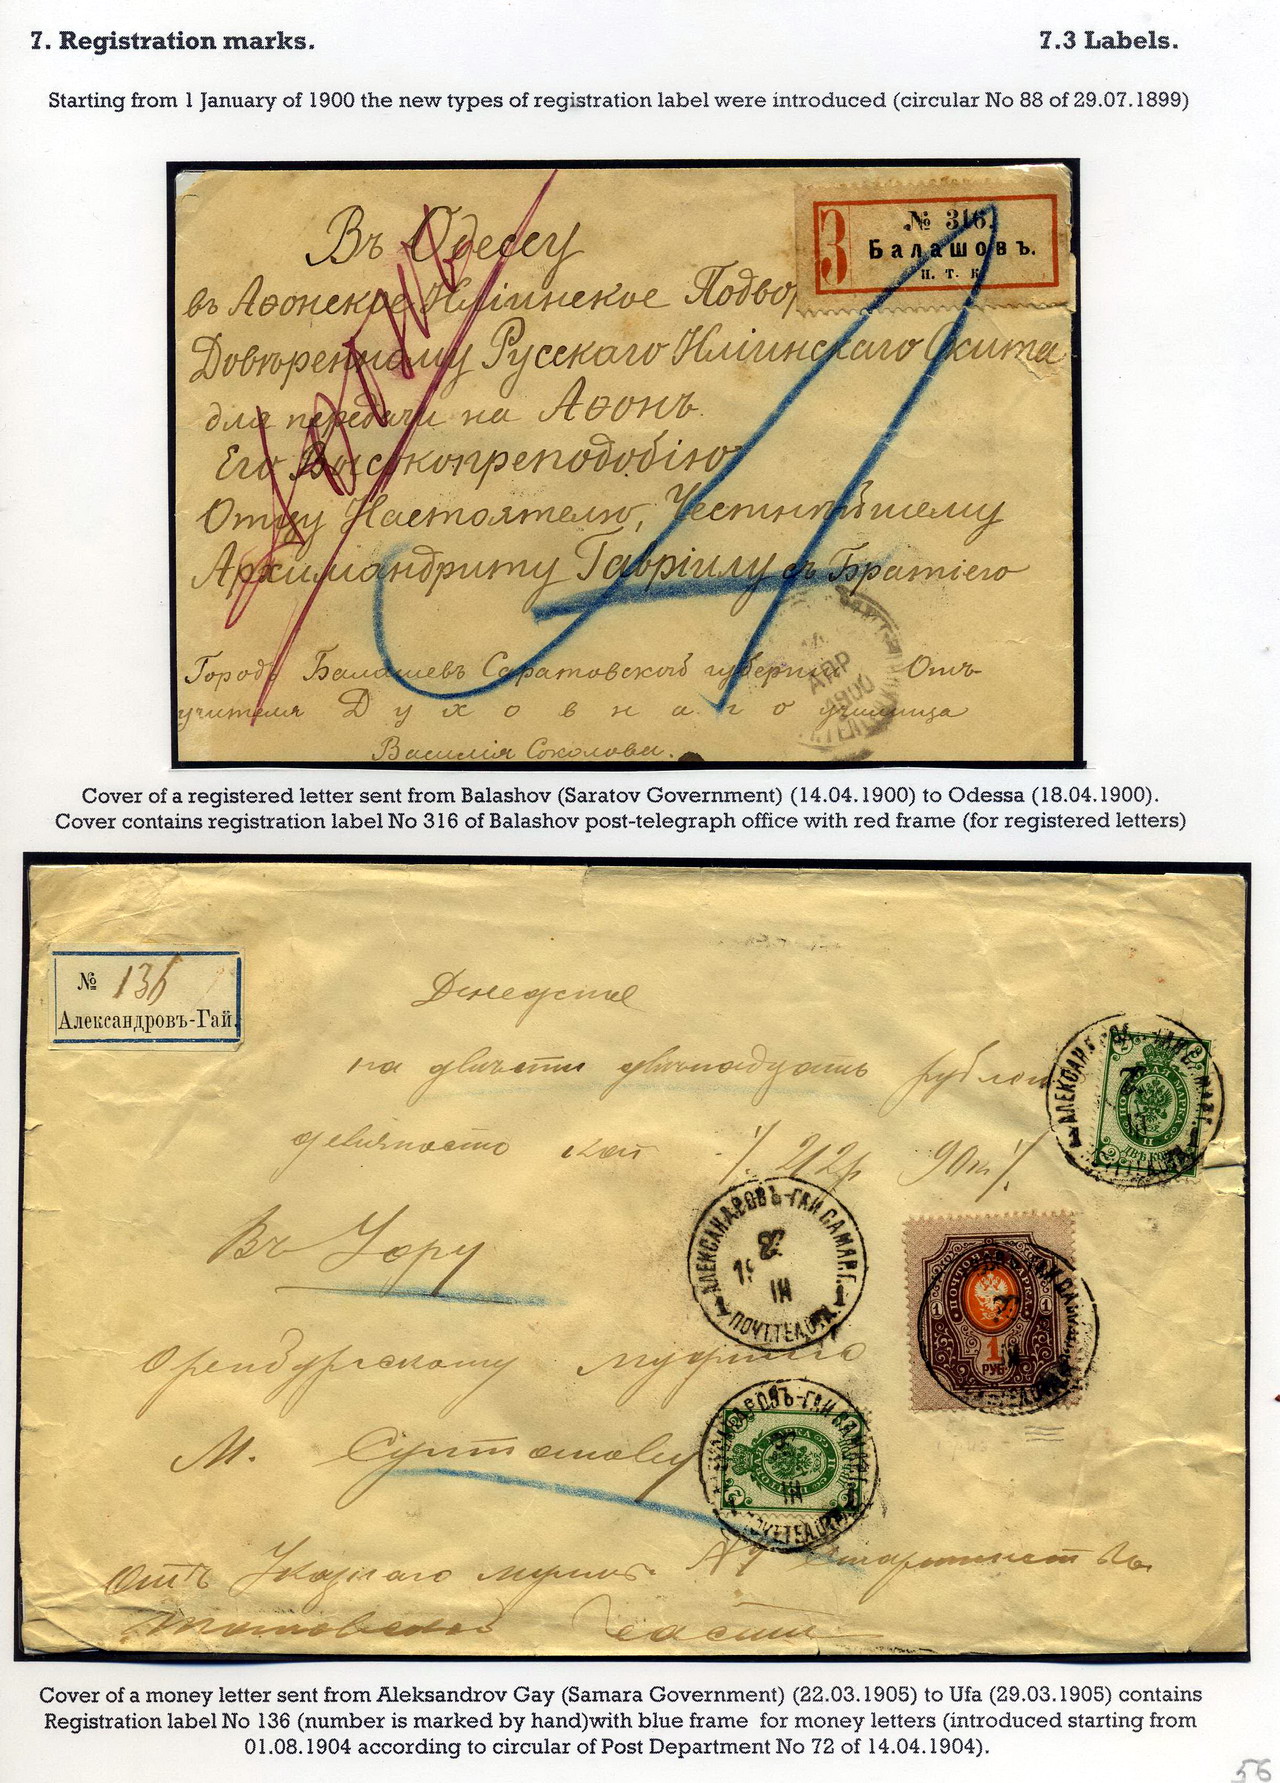 7. Registration marks.
7.3 Labels.
Starting from 1 January of 1900 the new types of registration label were introduced (circular No 88 of 29.07.1899)
Въ Одессу
въ Аѳонское Иліинское Подво
Довѣренному Русскаго Иліинскаго Скита
для передачи на Аѳонъ
Его Высокопреподобію
Отцу Настоятелю, Честнѣйшему
Архимандриту Гавріилу съ Братіею
Городъ Балашевъ Саратовской губерніи Отъ
учителя Духовнаго училища
Василія Соколова.
З
№ 316.
Балашовъ.
п. т. к
АПР
1900
Cover of a registered letter sent from Balashov (Saratov Government) (14.04.1900) to Odessa (18.04.1900).
Cover contains registration label No 316 of Balashov post-telegraph office with red frame (for registered letters)
№ 136
Александровъ-Гай.
Денежное
на двѣсти двѣнадцать рублей
девяносто коп ·/. 212р 90к ·/.
Въ Уфу
Оренбургскому муфтію
М. Султанову
Отъ Указнаго муллы
части
АЛЕКСАНДРОВЪ-ГАЙ САМАР.Г.
22
III
1 ПОЧТ.ТЕЛ.ОТД. 1
ПОЧТОВАЯ МАРКА
1
РУБ
Cover of a money letter sent from Aleksandrov Gay (Samara Government) (22.03.1905) to Ufa (29.03.1905) contains
Registration label No 136 (number is marked by hand)with blue frame for money letters (introduced starting from
01.08.1904 according to circular of Post Department No 72 of 14.04.1904).
56